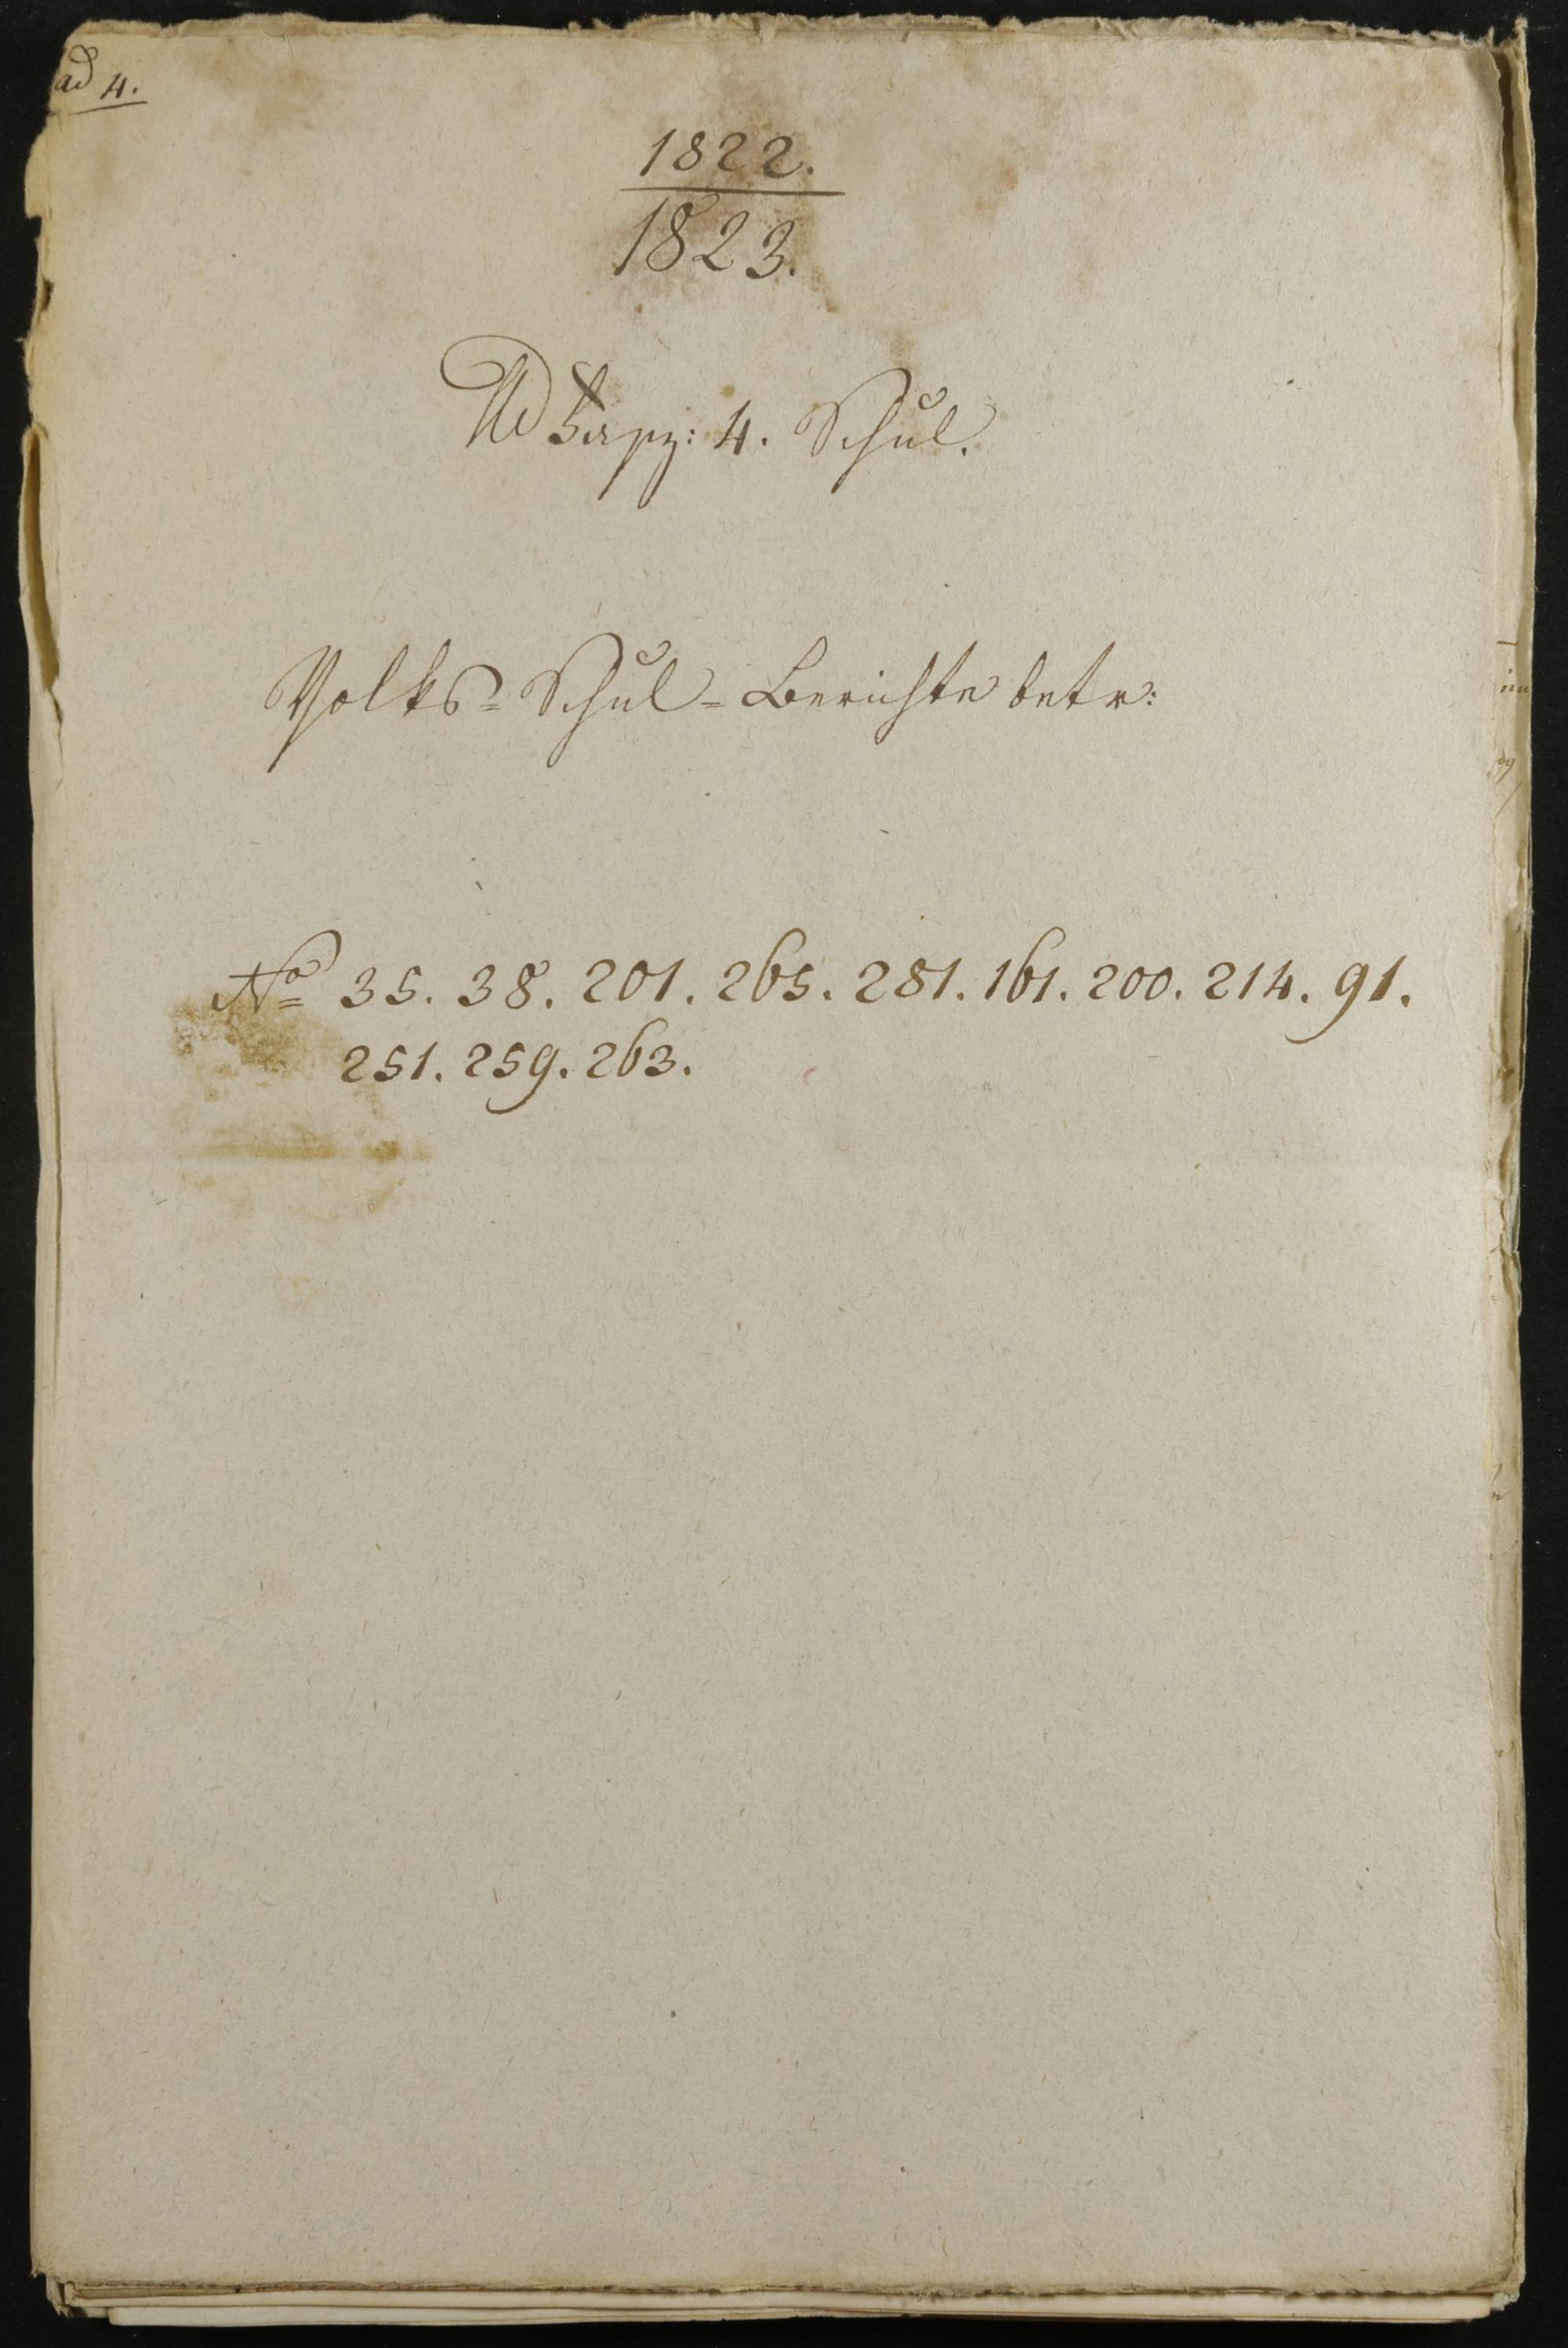 ad 4.
1822.
1823.
Ad Fasz: 4. Schul.
Volks=Schul=Berichte betr:
No 35. 38. 201. 265. 281. 161. 200. 214. 91.
251. 259. 263.